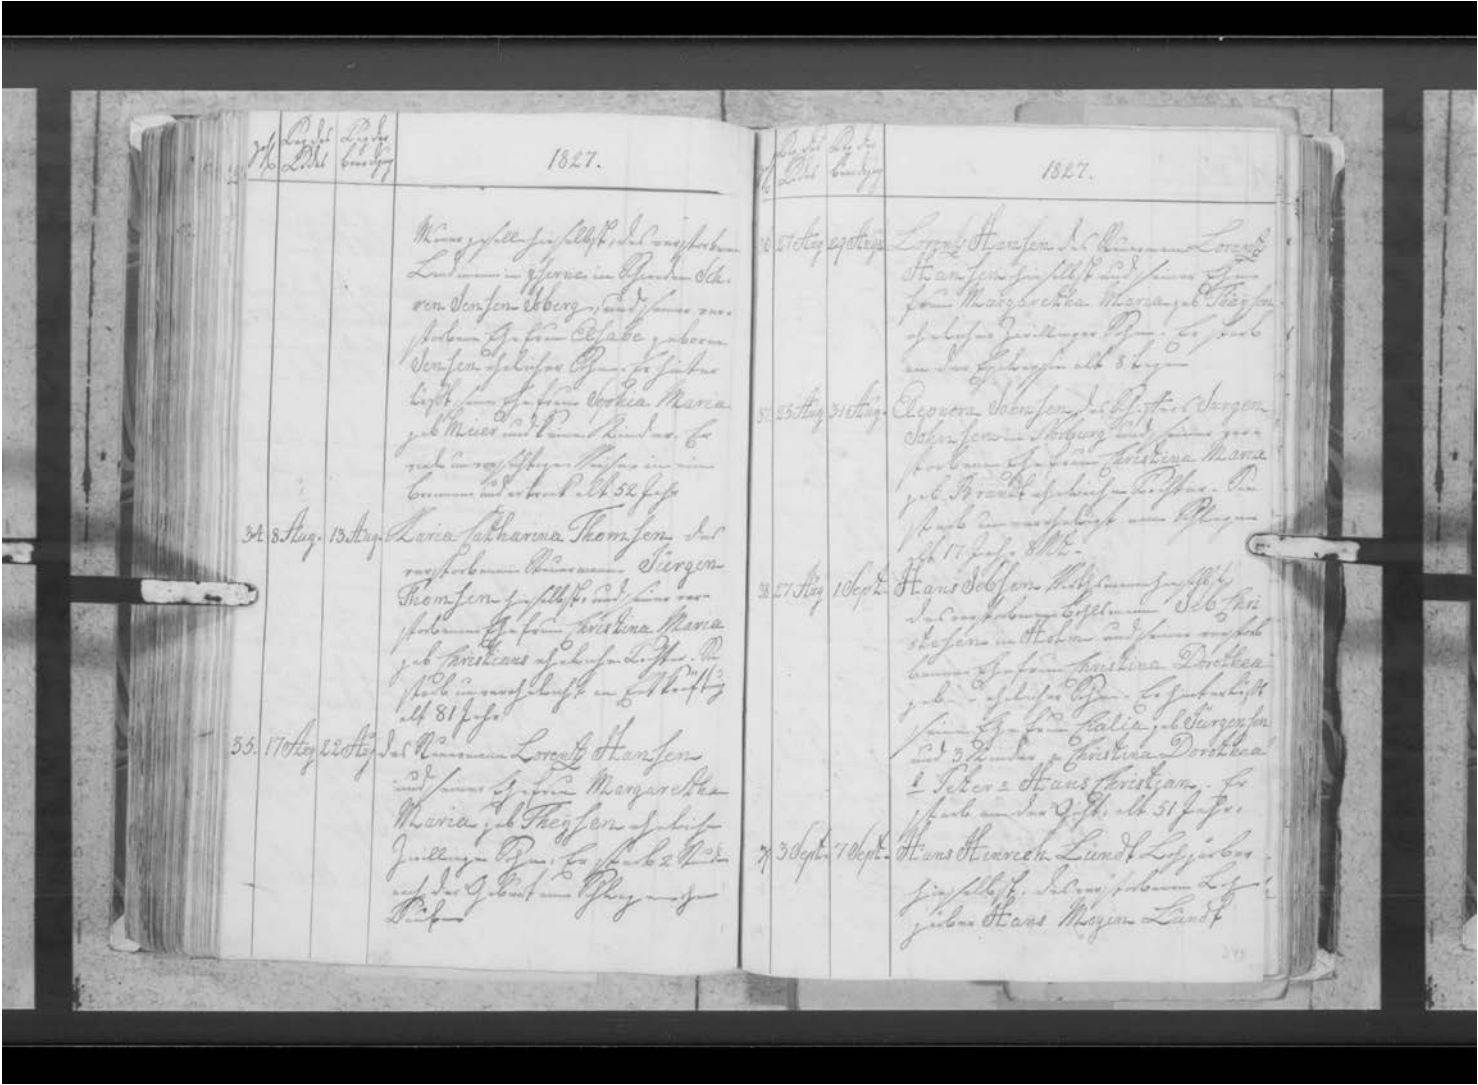 Tag des
Todes
1827.
Maurergesell hieselbst, des verstorbenen
Landmann in in Schweden Sö-
ren Jensen Sberg, und seiner ver-
storbenen Ehefrau Elsabe geborne
Jensen ehelicher Sohn. Er hinter
läßt seine Ehefrau Sophia Maria
geb Meier und keine Kinder. Er
in ein
Brunnen und ertrank alt 52 Jahr
34. 8 Aug. 13 Aug. Maria Catharina Thomsen des
verstorbenen Steuermann Jürgen
Thomsen hieselbst, und seiner ver-
storbenen Ehefrau Christina Maria
geb Christians eheliche Tochter. Sie
starb unverehelicht an Entkräftung
alt 81 Jahr
35. 17 Aug 22 Aug des Lorentz Hansen
und seiner Ehefrau Margaretha
Maria geb Theysen eheliche
Zwillinge Sohn. Er starb 2 Stunden
nach der Geburt am Schlag ohne
Taufe
Tag des
Todes
1827.
36 27 Aug 29 Aug. Lorentz Hansen des Lorentz
Hansen hieselbst und seiner Ehe-
frau Margaretha Maria geb Theysen
ehelicher Zwillinge Sohn. Er starb
an der Epilepsie alt 8 Tage
37. 25 Aug 31 Aug. Eleonora Johnsen, des Schiffers Jürgen
Johnsen in Norburg und seiner ver-
storbenen Ehefrau Christina Maria
geb. Brandt eheliche Tochter. Sie
starb unverehelicht am Schlage
alt 17 Jahr 8 Mt.
38. 27 Aug 1 Sept. Hans Jebsen hieselbst,
des verstorbenen Bohlsmann Jeb Chri
stesen in Holm und seiner verstor
benen Ehefrau Christina Dorothea
geb. - ehelicher Sohn. Er hinterläßt
seine Ehefrau geb Jürgensen
und 3 Kinder Christina Dorothea
Peter Hans Christian. Er
starb an der Gicht, alt 51 Jahr.
39 3 Sept. 7 Sept. Hans Hinrich Lundt Lohgerber
hieselbst, des verstorbenen Loh
gerber Hans Mogen Lundt